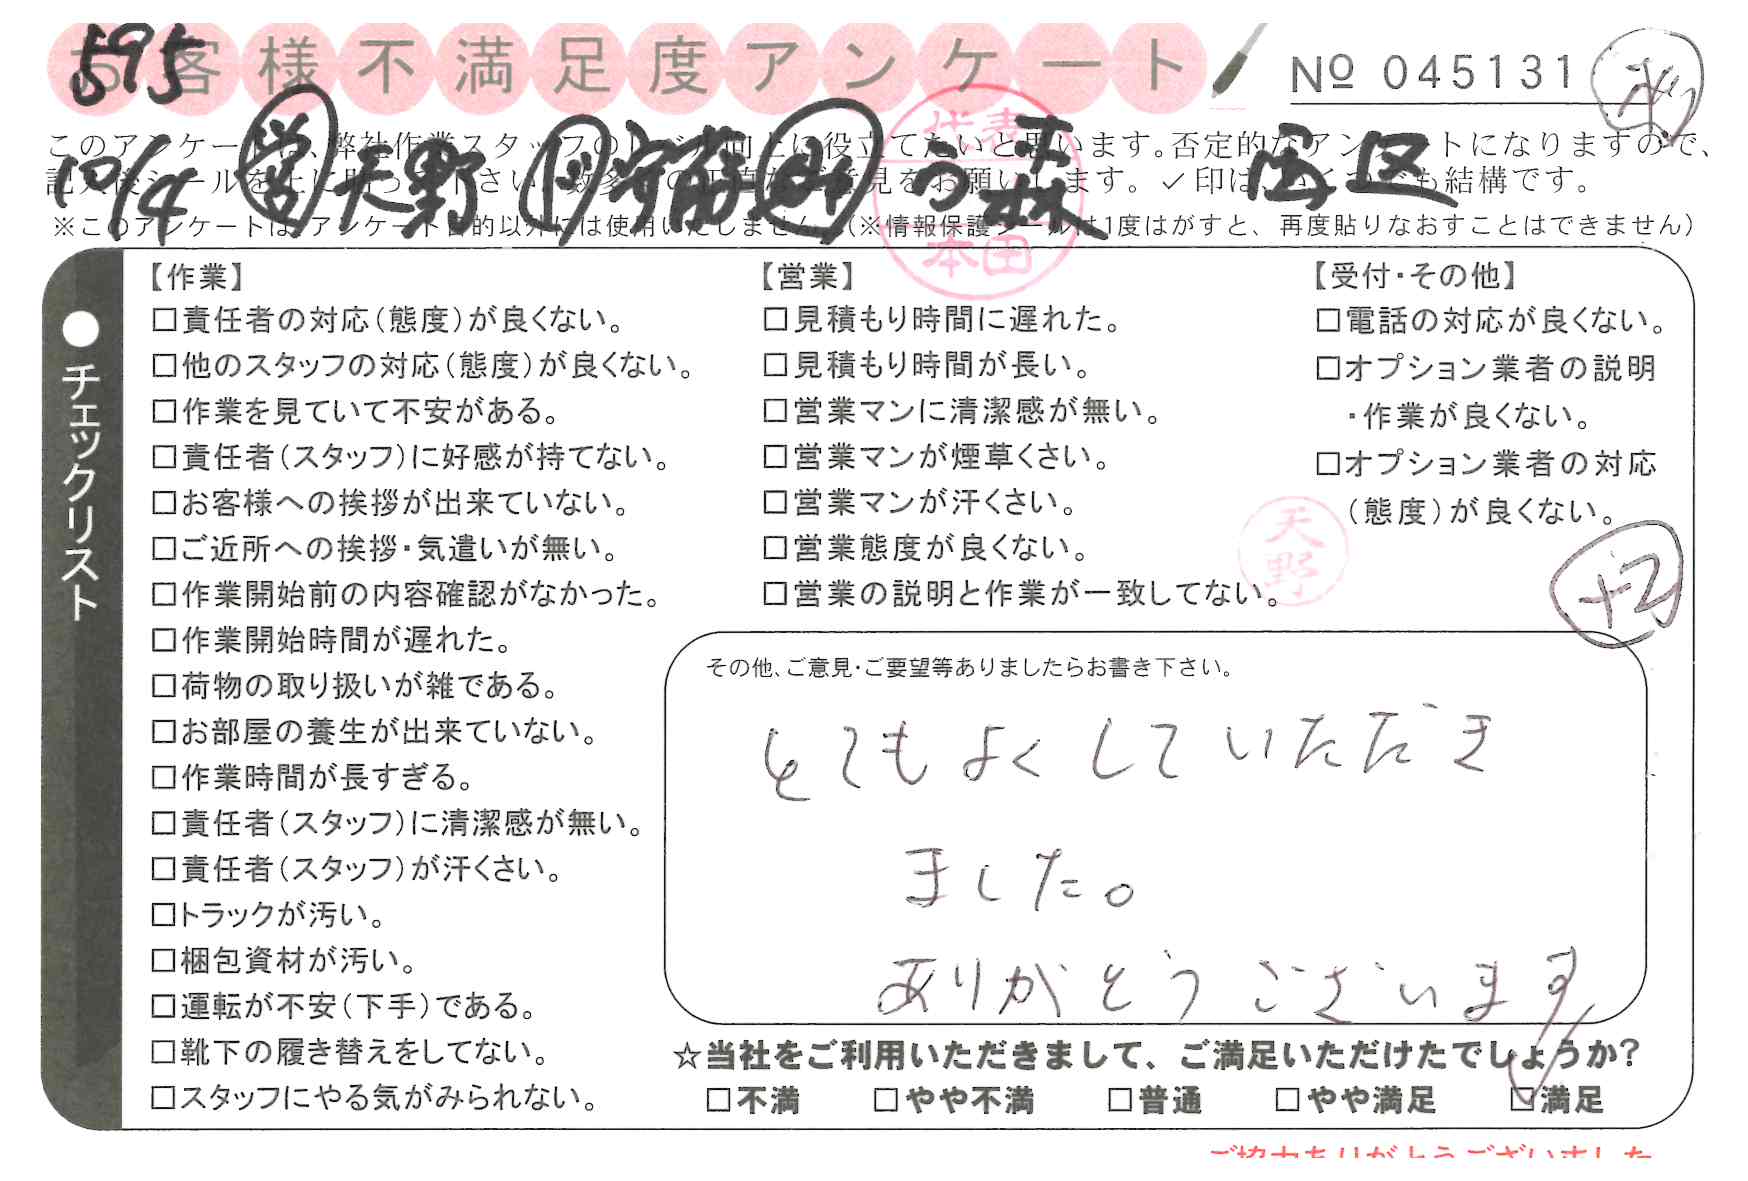 お客様不満足度アンケート
595
№ 045131
このアンケートは、弊社作業スタッフのレベル向上に役立てたいと思います。否定的なアンケートになりますので、
※このアンケートは、アンケート目的以外には使用いたしません。(※情報保護シールは1度はがすと、再度貼りなおすことはできません)
10/4 営 天野
代表
本田
●チェックリスト
【作業】
□責任者の対応(態度)が良くない。
□他のスタッフの対応(態度)が良くない。
□作業を見ていて不安がある。
□責任者(スタッフ)に好感が持てない。
□お客様への挨拶が出来ていない。
□ご近所への挨拶・気遣いが無い。
□作業開始前の内容確認がなかった。
□作業開始時間が遅れた。
□荷物の取り扱いが雑である。
□お部屋の養生が出来ていない。
□作業時間が長すぎる。
□責任者(スタッフ)に清潔感が無い。
□責任者(スタッフ)が汗くさい。
□トラックが汚い。
□梱包資材が汚い。
□運転が不安(下手)である。
□靴下の履き替えをしてない。
□スタッフにやる気がみられない。
【営業】
□見積もり時間に遅れた。
□見積もり時間が長い。
□営業マンに清潔感が無い。
□営業マンが煙草くさい。
□営業マンが汗くさい。
□営業態度が良くない。
□営業の説明と作業が一致してない。
【受付・その他】
□電話の対応が良くない。
□オプション業者の説明
・作業が良くない。
□オプション業者の対応
(態度)が良くない。
天野
+2
その他、ご意見・ご要望等ありましたらお書き下さい。
とてもよくしていただき
ました。
ありがとうございます
☆当社をご利用いただきまして、ご満足いただけたでしょうか?
□不満 □やや不満 □普通 □やや満足 ☑満足
ご協力ありがとうございました